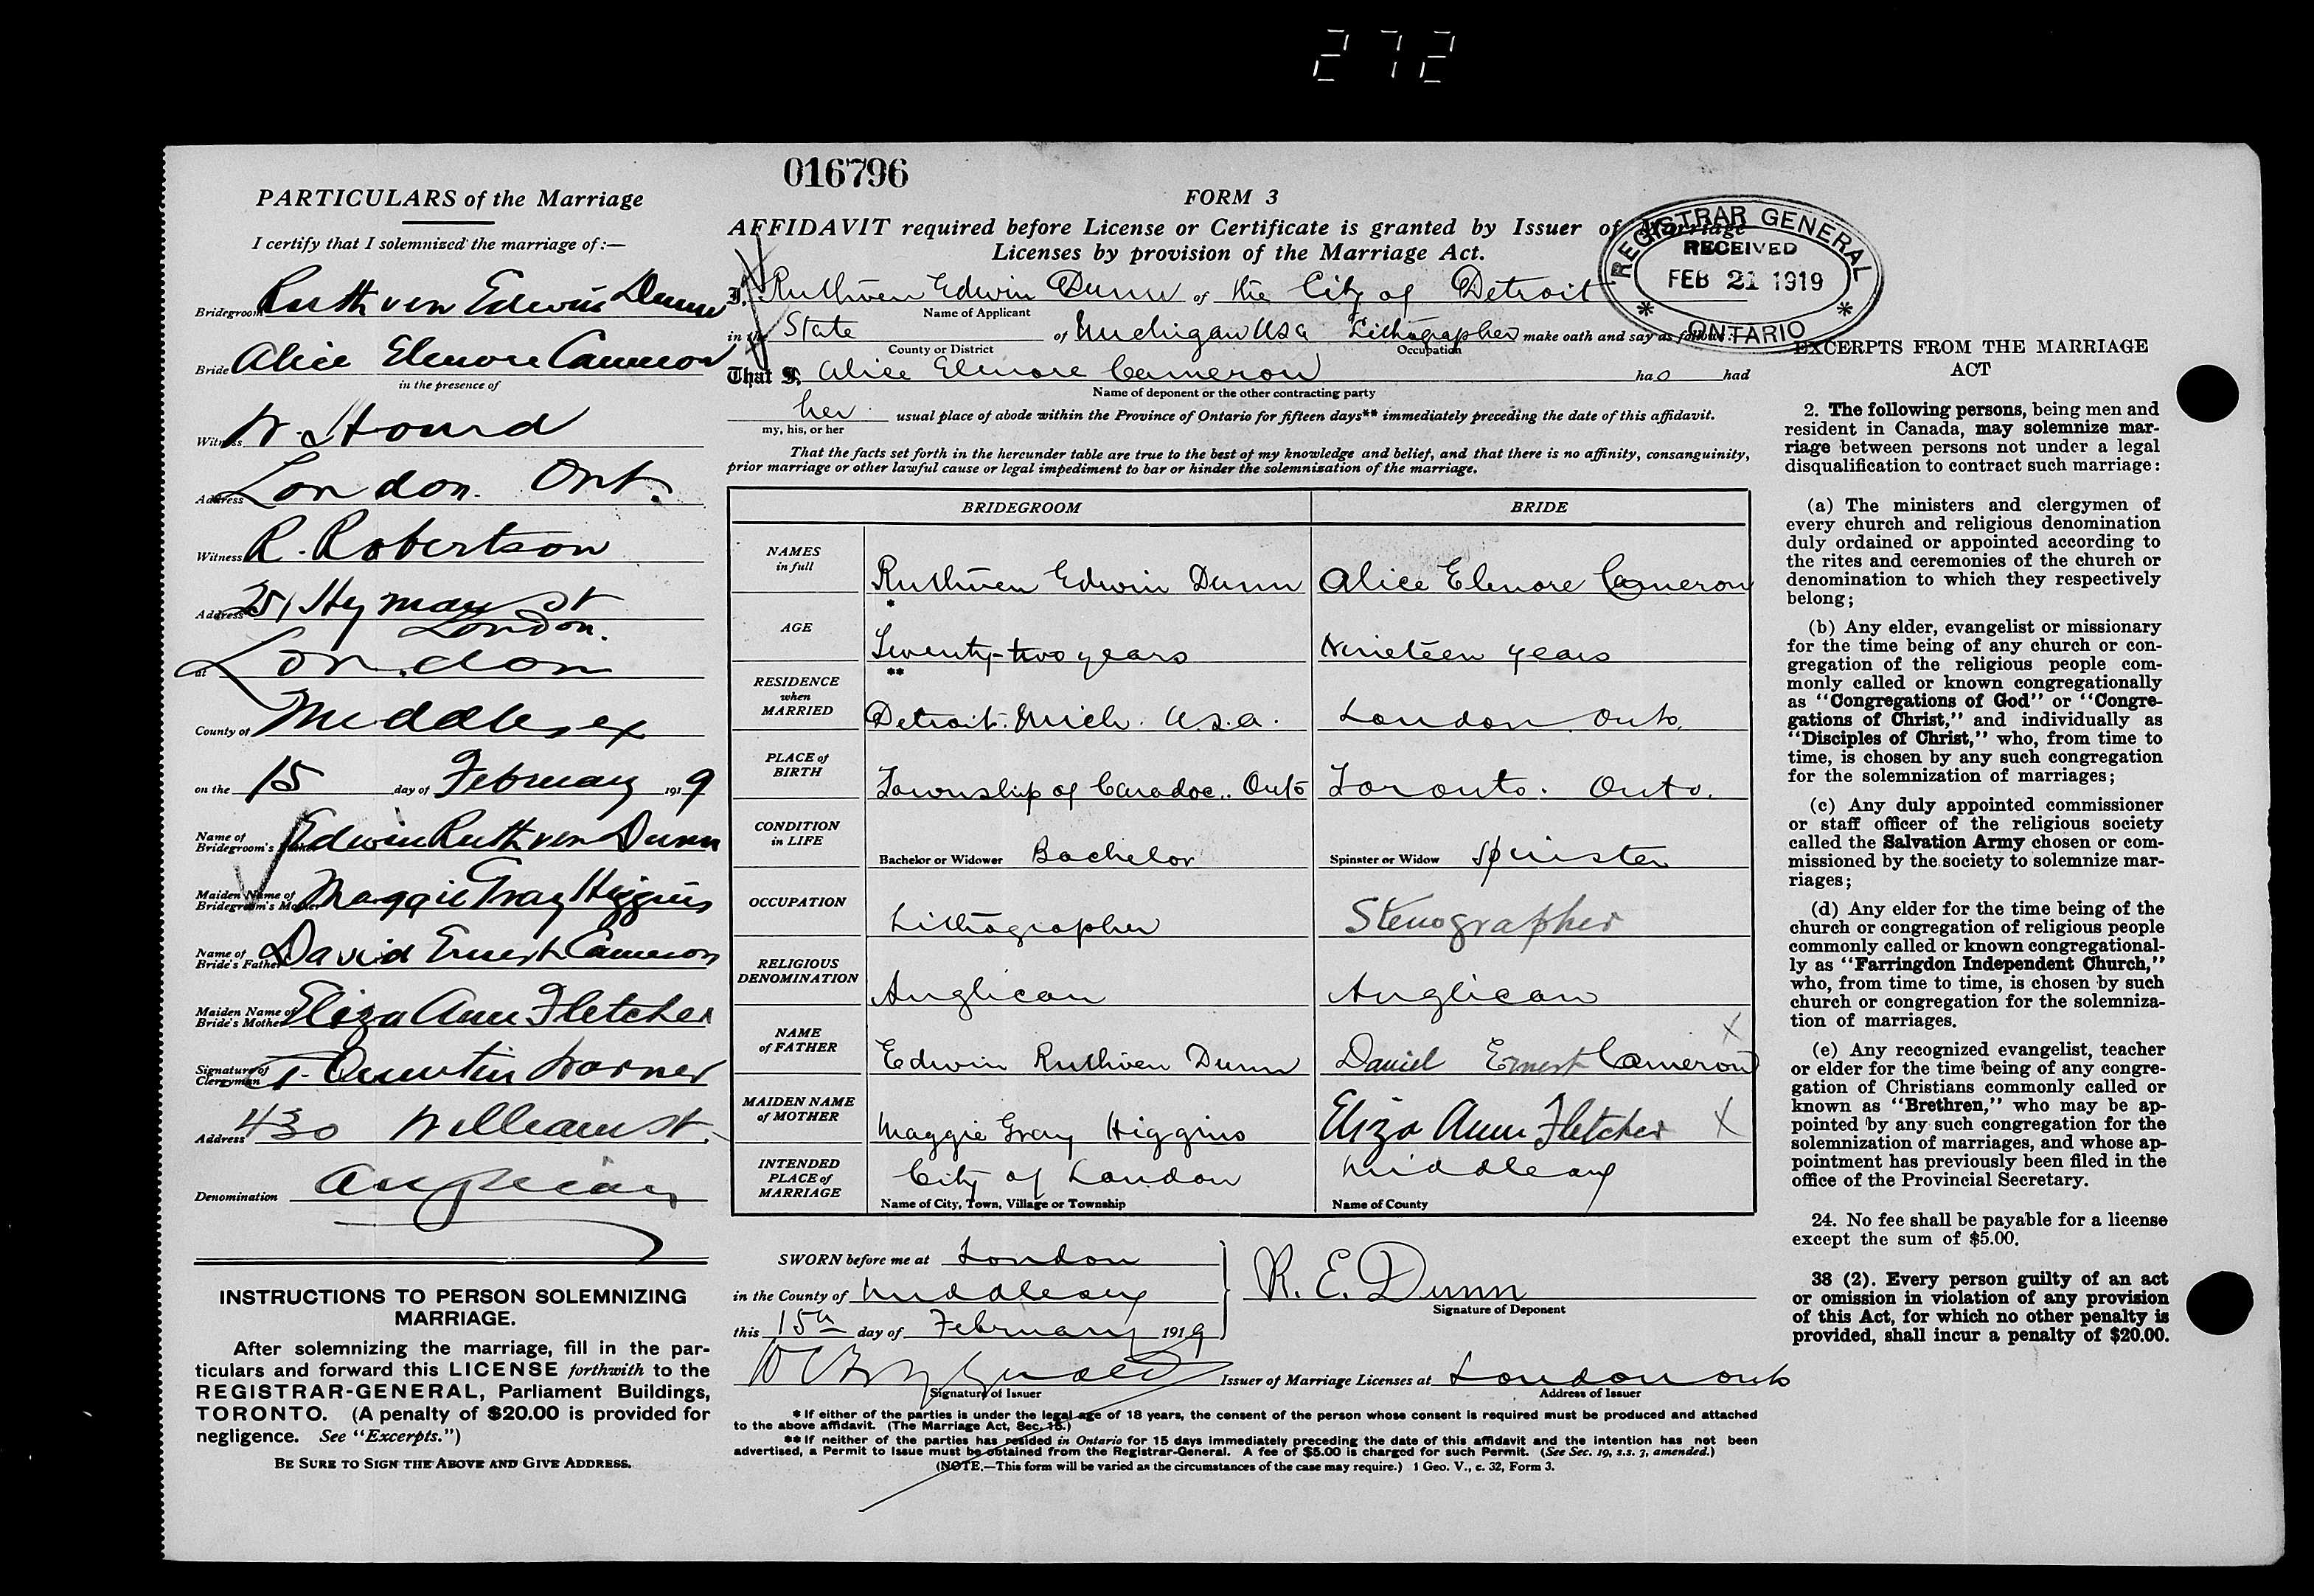 272
016796
PARTICULARS of the Marriage
I certify that I solemnized the marriage of:—
Bridegroom Ruthven Edwin Dunn
Bride Alice Elenore Cameron
in the presence of
Witness
Address London. Ont.
Witness R. Robertson
Address 251 Hyman St
London.
at London
County of Middlesex
on the 15 day of February 1919
Name of Bridegroom's Father Edwin Ruthven Dunn
Maiden Name of Bridegroom's Mother Maggie Gray Higgins
Name of Bride's Father David Ernest Cameron
Maiden Name of Bride's Mother Eliza Ann Fletcher
Signature of Clergyman Quintin Warner
Address 430 William St.
Denomination Anglican
INSTRUCTIONS TO PERSON SOLEMNIZING
MARRIAGE.
After solemnizing the marriage, fill in the par-
ticulars and forward this LICENSE forthwith to the
REGISTRAR-GENERAL, Parliament Buildings,
TORONTO. (A penalty of $20.00 is provided for
negligence. See "Excerpts.")
BE SURE TO SIGN THE ABOVE AND GIVE ADDRESS.
FORM 3
AFFIDAVIT required before License or Certificate is granted by Issuer of Marriage
Licenses by provision of the Marriage Act.
REGISTRAR GENERAL
RECEIVED
FEB 21 1919
* ONTARIO *
I, Ruthven Edwin Dunn of the City of Detroit
Name of Applicant
in the State of Michigan USA Lithographer make oath and say as follows:
County or District Occupation
That I, Alice Elenore Cameron has had
Name of deponent or the other contracting party
her usual place of abode within the Province of Ontario for fifteen days** immediately preceding the date of this affidavit.
my, his, or her
That the facts set forth in the hereunder table are true to the best of my knowledge and belief, and that there is no affinity, consanguinity,
prior marriage or other lawful cause or legal impediment to bar or hinder the solemnization of the marriage.
BRIDEGROOM BRIDE
NAMES in full Ruthven Edwin Dunn Alice Elenore Cameron
*
AGE Twenty-two years Nineteen years
**
RESIDENCE when MARRIED Detroit. Mich. U.S.A. London Onto.
PLACE of BIRTH Township of Caradoc. Onto Toronto. Onto.
CONDITION in LIFE Bachelor or Widower Bachelor Spinster or Widow Spinster
OCCUPATION Lithographer Stenographer
RELIGIOUS DENOMINATION Anglican Anglican
NAME of FATHER Edwin Ruthven Dunn Daniel Ernest Cameron X
MAIDEN NAME of MOTHER Maggie Gray Higgins Eliza Ann Fletcher X
INTENDED PLACE of MARRIAGE City of London Middlesex
Name of City, Town, Village or Township Name of County
SWORN before me at London
in the County of Middlesex
this 15th day of February 1919
R. E. Dunn
Signature of Deponent
Issuer of Marriage Licenses at London Onto
Signature of Issuer Address of Issuer
* If either of the parties is under the legal age of 18 years, the consent of the person whose consent is required must be produced and attached
to the above affidavit. (The Marriage Act, Sec. 15.)
** If neither of the parties has resided in Ontario for 15 days immediately preceding the date of this affidavit and the intention has not been
advertised, a Permit to Issue must be obtained from the Registrar-General. A fee of $5.00 is charged for such Permit. (See Sec. 19, s.s. 3, amended.)
(NOTE.—This form will be varied as the circumstances of the case may require.) 1 Geo. V., c. 32, Form 3.
EXCERPTS FROM THE MARRIAGE
ACT
2. The following persons, being men and
resident in Canada, may solemnize mar-
riage between persons not under a legal
disqualification to contract such marriage:
(a) The ministers and clergymen of
every church and religious denomination
duly ordained or appointed according to
the rites and ceremonies of the church or
denomination to which they respectively
belong;
(b) Any elder, evangelist or missionary
for the time being of any church or con-
gregation of the religious people com-
monly called or known congregationally
as "Congregations of God" or "Congre-
gations of Christ," and individually as
"Disciples of Christ," who, from time to
time, is chosen by any such congregation
for the solemnization of marriages;
(c) Any duly appointed commissioner
or staff officer of the religious society
called the Salvation Army chosen or com-
missioned by the society to solemnize mar-
riages;
(d) Any elder for the time being of the
church or congregation of religious people
commonly called or known congregational-
ly as "Farringdon Independent Church,"
who, from time to time, is chosen by such
church or congregation for the solemniza-
tion of marriages.
(e) Any recognized evangelist, teacher
or elder for the time being of any congre-
gation of Christians commonly called or
known as "Brethren," who may be ap-
pointed by any such congregation for the
solemnization of marriages, and whose ap-
pointment has previously been filed in the
office of the Provincial Secretary.
24. No fee shall be payable for a license
except the sum of $5.00.
38 (2). Every person guilty of an act
or omission in violation of any provision
of this Act, for which no other penalty is
provided, shall incur a penalty of $20.00.